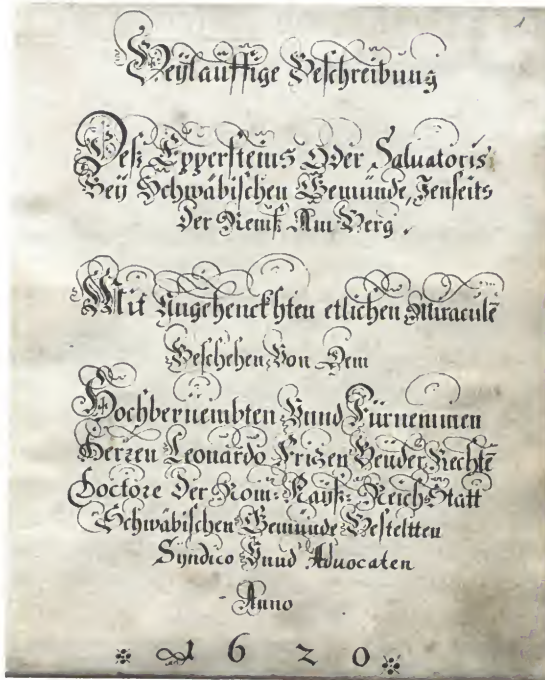 1
Beÿlauffige Beschreibung
Deß Eppersteins Oder Saluatoris
Beÿ Schwäbischen Gemünde, Jenseits
Der Remß Am Berg.
Mit Angehenckhten etlichen Miraculē
Beschehen Von Dem
Hochberüembten Vnnd Fürnemmen
Herren Leonardo Frizen Beuder Rechtē
Doctore Der Röm: Kaÿß: Reich Statt
Schwäbischen Gemünde Besteltten
Sÿndico Vnnd Aduocaten
Anno
1620